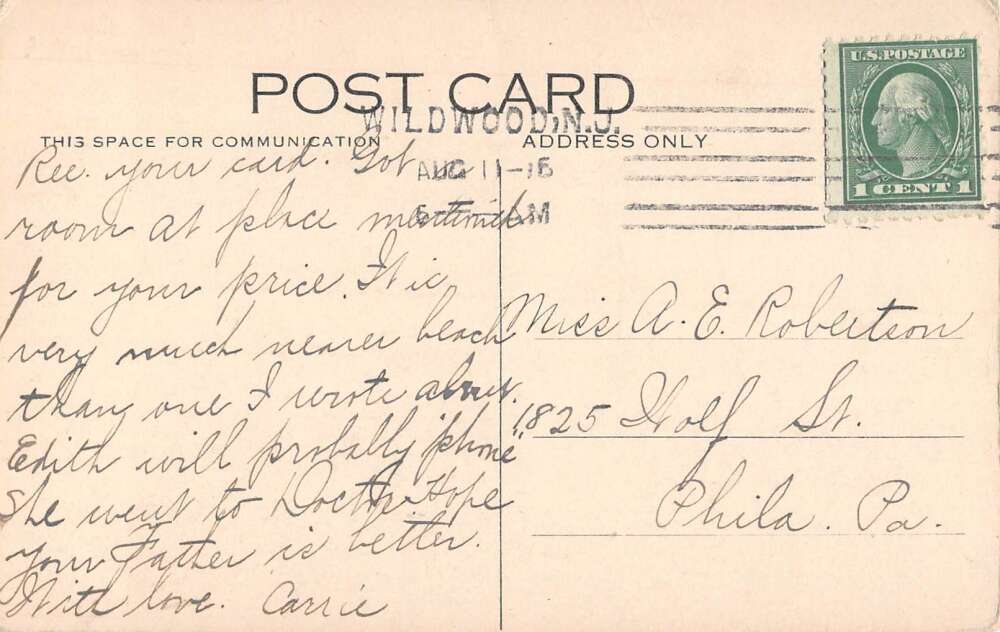 POST CARD
THIS SPACE FOR COMMUNICATION
ADDRESS ONLY
WILDWOOD, N.J.
AUG 11
AM
U.S. POSTAGE
1 CENT 1
Rec. your card. Got
room at place mentioned
for your price. It is
very much nearer beach
than one I wrote about.
Edith will probably 'phone
She went to Doctor Hope
your Father is better.
With love. Carrie
Miss A. E. Robertson
1825 St.
Phila. Pa.